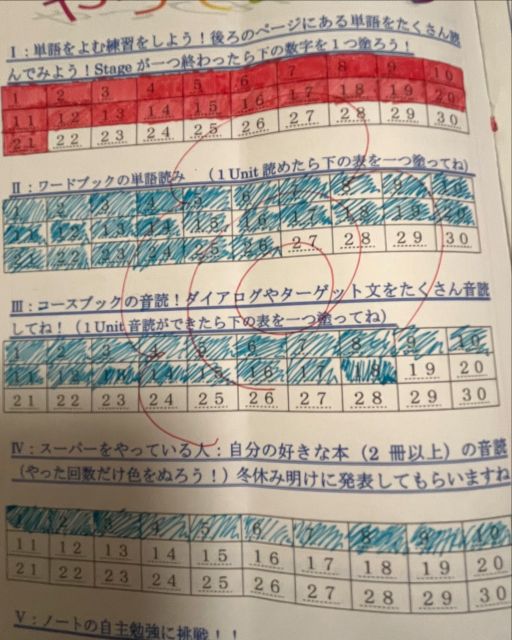 I：単語をよむ練習をしよう！後ろのページにある単語をたくさん読
んでみよう！Stage が一つ終わったら下の数字を1つ塗ろう！
1 2 3 4 5 6 7 8 9 10
11 12 13 14 15 16 17 18 19 20
21 22 23 24 25 26 27 28 29 30
Ⅱ：ワードブックの単語読み （1 Unit 読めたら下の表を一つ塗ってね）
1 2 3 4 5 6 7 8 9 10
11 12 13 14 15 16 17 18 19 20
21 22 23 24 25 26 27 28 29 30
Ⅲ：コースブックの音読！ダイアログやターゲット文をたくさん音読
してね！（1 Unit 音読ができたら下の表を一つ塗ってね）
1 2 3 4 5 6 7 8 9 10
11 12 13 14 15 16 17 18 19 20
21 22 23 24 25 26 27 28 29 30
Ⅳ：スーパーをやっている人：自分の好きな本（2 冊以上）の音読
（やった回数だけ色をぬろう！）冬休み明けに発表してもらいますね
1 2 3 4 5 6 7 8 9 10
11 12 13 14 15 16 17 18 19 20
21 22 23 24 25 26 27 28 29 30
V：ノートの自主勉強に挑戦！！